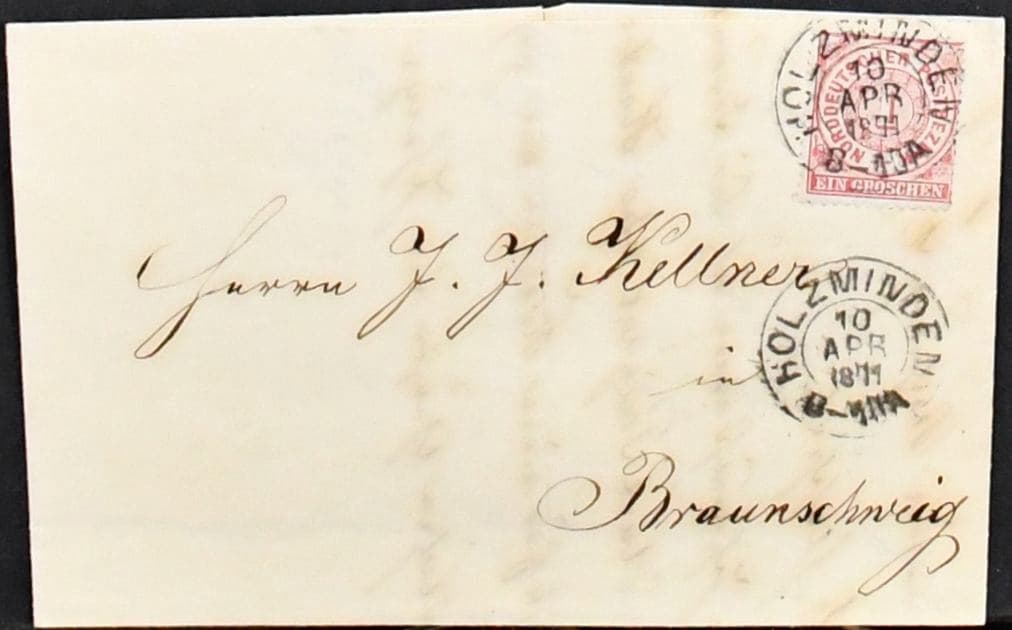 HOLZMINDEN
10
APR
1871
8-10A
NORDDEUTSCHER POSTBEZIRK
1
EIN GROSCHEN
Herrn J. J. Kellner
HOLZMINDEN
10
APR
1871
in
Braunschweig